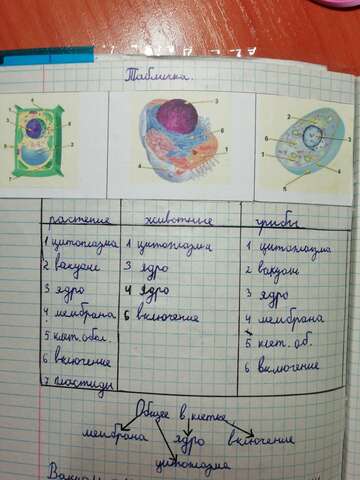 Табличка.
растение животные грибы
1 цитоплазма 1 цитоплазма 1 цитоплазма
2 вакуоль 3 ядро 2 вакуоль
3 ядро 4 ядро 3 ядро
4 мембрана 6 включение 4 мембрана
5 клет. обол. 5 клет. об.
6 включение 6 включение
7 пластиды
Общее в клетке
мембрана ядро включение
цитоплазма